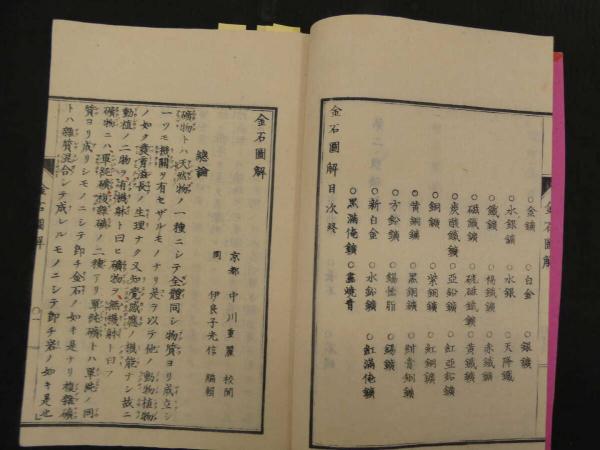 ○金鑛 ○白金 ○銀鑛
○水銀鑛 ○水銀 ○天降鐵
○鐵鑛 ○褐鐵鑛 ○赤鐵鑛
○磁鐵鑛 ○硫砒鐵鑛 ○黄鐵鑛
○炭酸鐵鑛 ○亞鉛鑛 ○紅亞鉛鑛
○銅鑛 ○紫銅鑛 ○紅銅鑛
○黄銅鑛 ○黒銅鑛 ○紺青銅鑛
○方鉛鑛 ○錫鑛 ○錫鑛
○新白金 ○水鉛鑛 ○紅滿俺鑛
○黒滿俺鑛 ○畫燒青
金石圖解目次終
金石圖解
金石圖解
總論
京都 中川重麗 校閲
同 伊良子光信 編輯
礦物トハ天然物ノ一種ニシテ全體同シ物質ヨリ成立シ
一ツモ機關ヲ有セザルモノナリ是ヲ以テ他ノ動物植物
ノ如ク養育滋長ノ生理ナク又知覺感應ノ機能ナシ故ニ
動植ノ二物ヲ有機躰ト曰ヒ礦物ヲ無機躰ト曰フ
礦物ニハ單純礦複雜礦ノ二種アリ單純礦トハ單純ノ同
質ヨリ成リシモノニシテ即チ金石ノ如キ是ナリ複雜礦
トハ雜質混合シテ成レルモノニシテ即チ岩ノ如キ是也
金石圖解
一